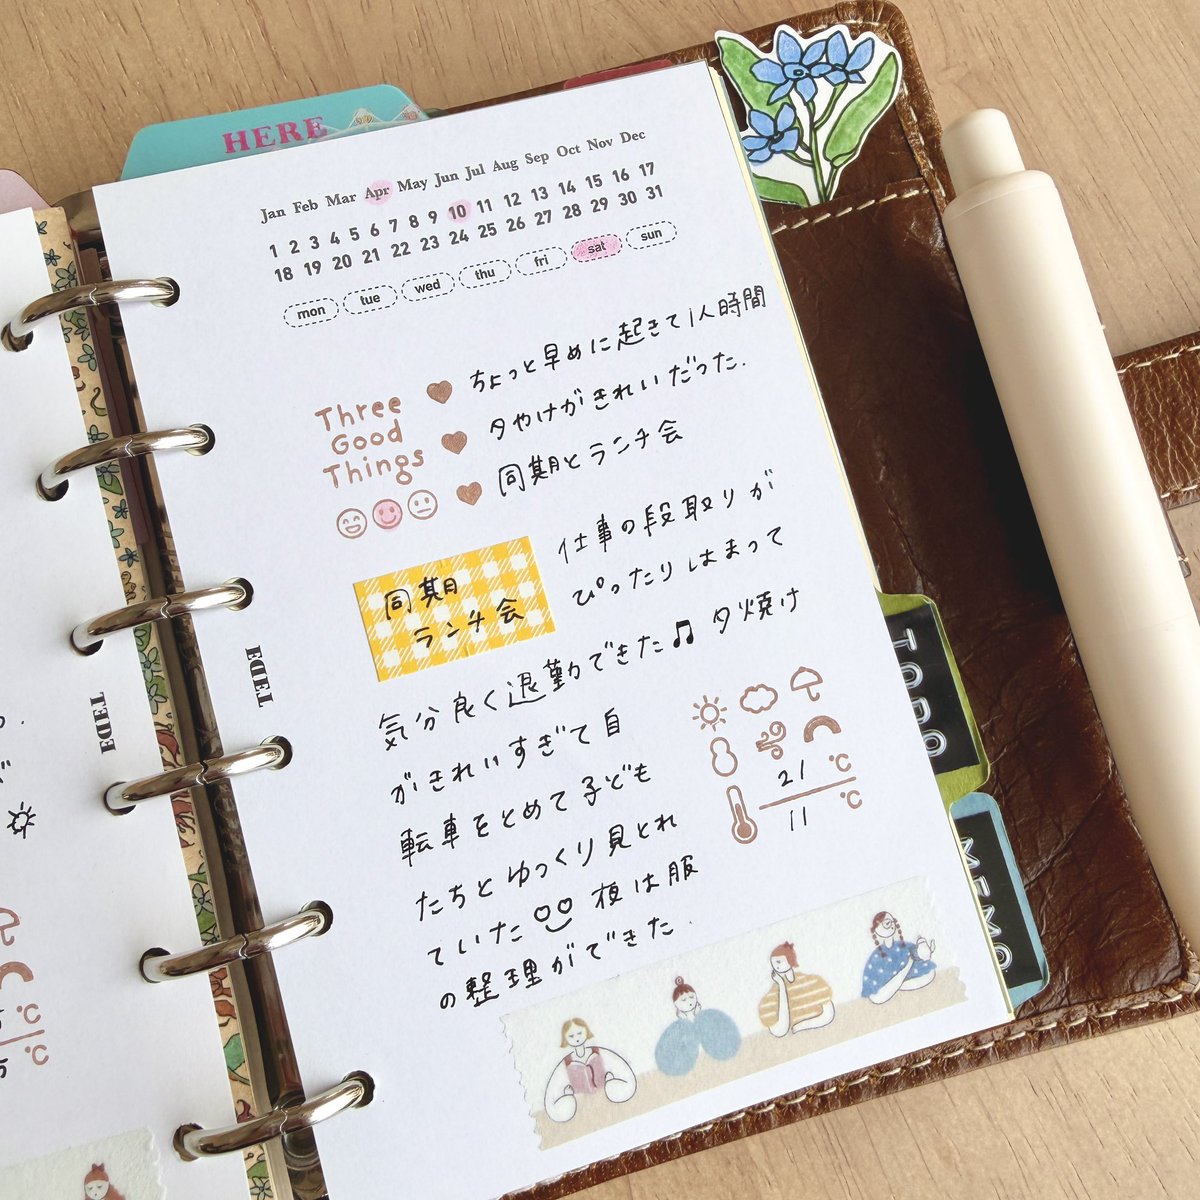 HERE
Jan Feb Mar Apr May Jun Jul Aug Sep Oct Nov Dec
1 2 3 4 5 6 7 8 9 10 11 12 13 14 15 16 17
18 19 20 21 22 23 24 25 26 27 28 29 30 31
mon tue wed thu fri sat sun
Three
Good
Things
ちょっと早めに起きて1人時間
夕やけがきれいだった.
同期とランチ会
同期
ランチ会
仕事の段取りが
ぴったりはまって
気分良く退勤できた♫ 夕焼け
がきれいすぎて自
転車をとめて子ども
たちとゆっくり見とれ
ていた 夜は服
の整理ができた.
21 ℃
11 ℃
TODO
MEMO
DEDE
DEDE
℃
℃